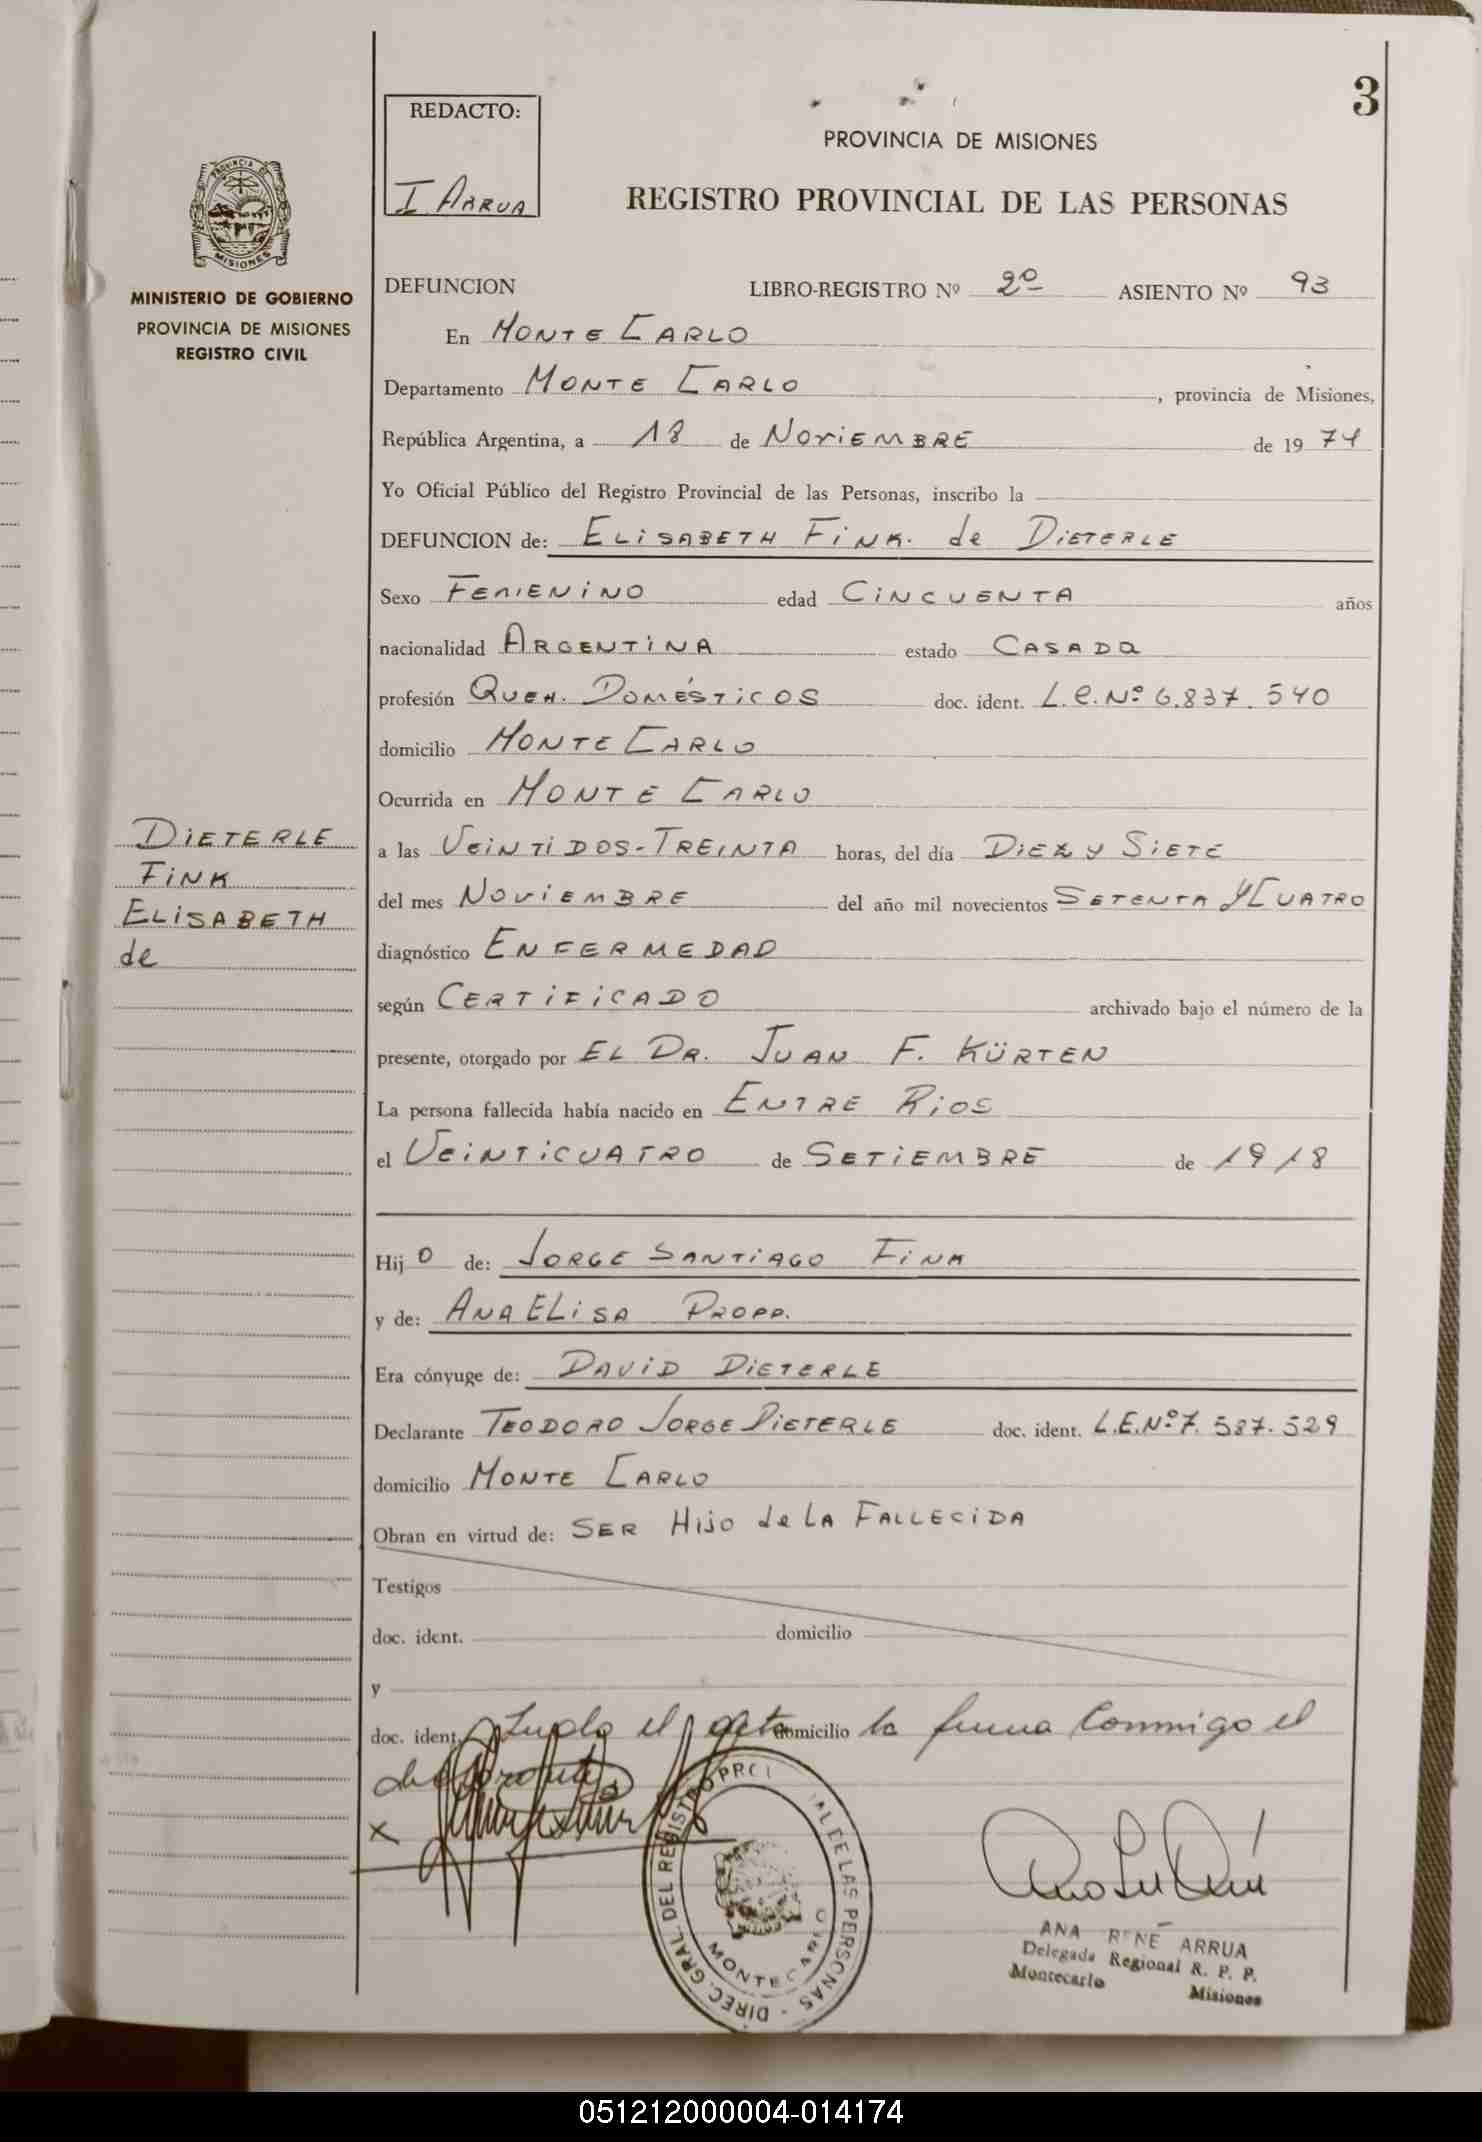 3
REDACTO:
I ARRUA
PROVINCIA DE MISIONES
REGISTRO PROVINCIAL DE LAS PERSONAS
PROVINCIA DE
MISIONES
MINISTERIO DE GOBIERNO
PROVINCIA DE MISIONES
REGISTRO CIVIL
DEFUNCION LIBRO-REGISTRO Nº 2º ASIENTO Nº 93
En MONTE CARLO
Departamento MONTE CARLO, provincia de Misiones,
República Argentina, a 18 de NOVIEMBRE de 1974
Yo Oficial Público del Registro Provincial de las Personas, inscribo la
DEFUNCION de: ELISABETH FINK. de DIETERLE
Sexo FEMENINO edad CINCUENTA años
nacionalidad ARGENTINA estado CASADA
profesión QUEH. DOMÉSTICOS doc. ident. L.C.Nº 6.837.540
domicilio MONTE CARLO
Ocurrida en MONTE CARLO
a las VEINTIDOS-TREINTA horas, del día DIEZ Y SIETE
del mes NOVIEMBRE del año mil novecientos SETENTA Y CUATRO
diagnóstico ENFERMEDAD
según CERTIFICADO archivado bajo el número de la
presente, otorgado por EL DR. JUAN F. KÜRTEN
La persona fallecida había nacido en ENTRE RIOS
el VEINTICUATRO de SETIEMBRE de 1918
Hijo de: JORGE SANTIAGO FINK
y de: ANA ELISA PROPP.
Era cónyuge de: DAVID DIETERLE
Declarante TEODORO JORGE DIETERLE doc. ident. L.E.Nº 7.587.529
domicilio MONTE CARLO
Obran en virtud de: SER HIJO de LA FALLECIDA
Testigos
doc. ident. domicilio
y
doc. ident. Leido el acta domicilio la firma conmigo el
declarante
x
DIETERLE
FINK
ELISABETH
de
DIREC. GRAL. DEL REGISTRO PROVINCIAL DE LAS PERSONAS -
MONTECARLO
ANA RENÉ ARRUA
Delegada Regional R. P. P.
Montecarlo Misiones
051212000004-014174